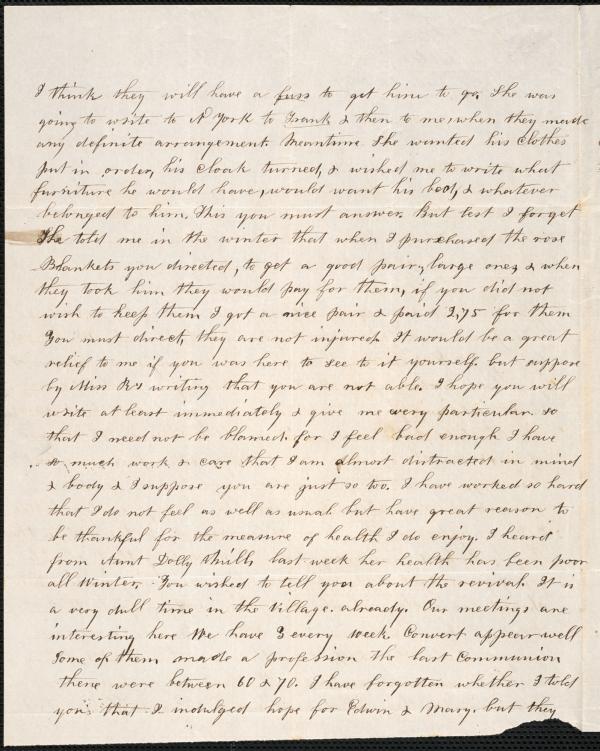 I think they will have a fuss to get him to go. She was
going to write to N York to Frank & then to me when they made
any definite arrangement. Meantime she wanted his clothes
put in order, his cloak turned, & wished me to write what
furniture he would have, would want his bed, & whatever
belonged to him. This you must answer. But lest I forget
She told me in the winter that when I purchased the rose
Blankets you directed, to get a good pair, large ones & when
they took him they would pay for them, if you did not
wish to keep them I got a nice pair & paid 2,75 for them
You must direct, they are not injured. It would be a great
relief to me if you was here to see to it yourself. but suppose
by Miss R's writing that you are not able. I hope you will
write at least immediately & give me very particular so
that I need not be blamed. for I feel bad enough I have
so much work & care that I am almost distracted in mind
& body & I suppose you are just so too. I have worked so hard
that I do not feel as well as usual but have great reason to
be thankful for the measure of health I do enjoy. I heard
from Aunt Dolly last week her health has been poor
all Winter. You wished to tell you about the revival. It is
a very dull time in the Village. already. Our meetings are
interesting here We have 3 every week. Convert appear well
Some of them made a profession the last Communion
there were between 60 & 70. I have forgotten whether I told
you that I indulged hope for Edwin & Mary. but they